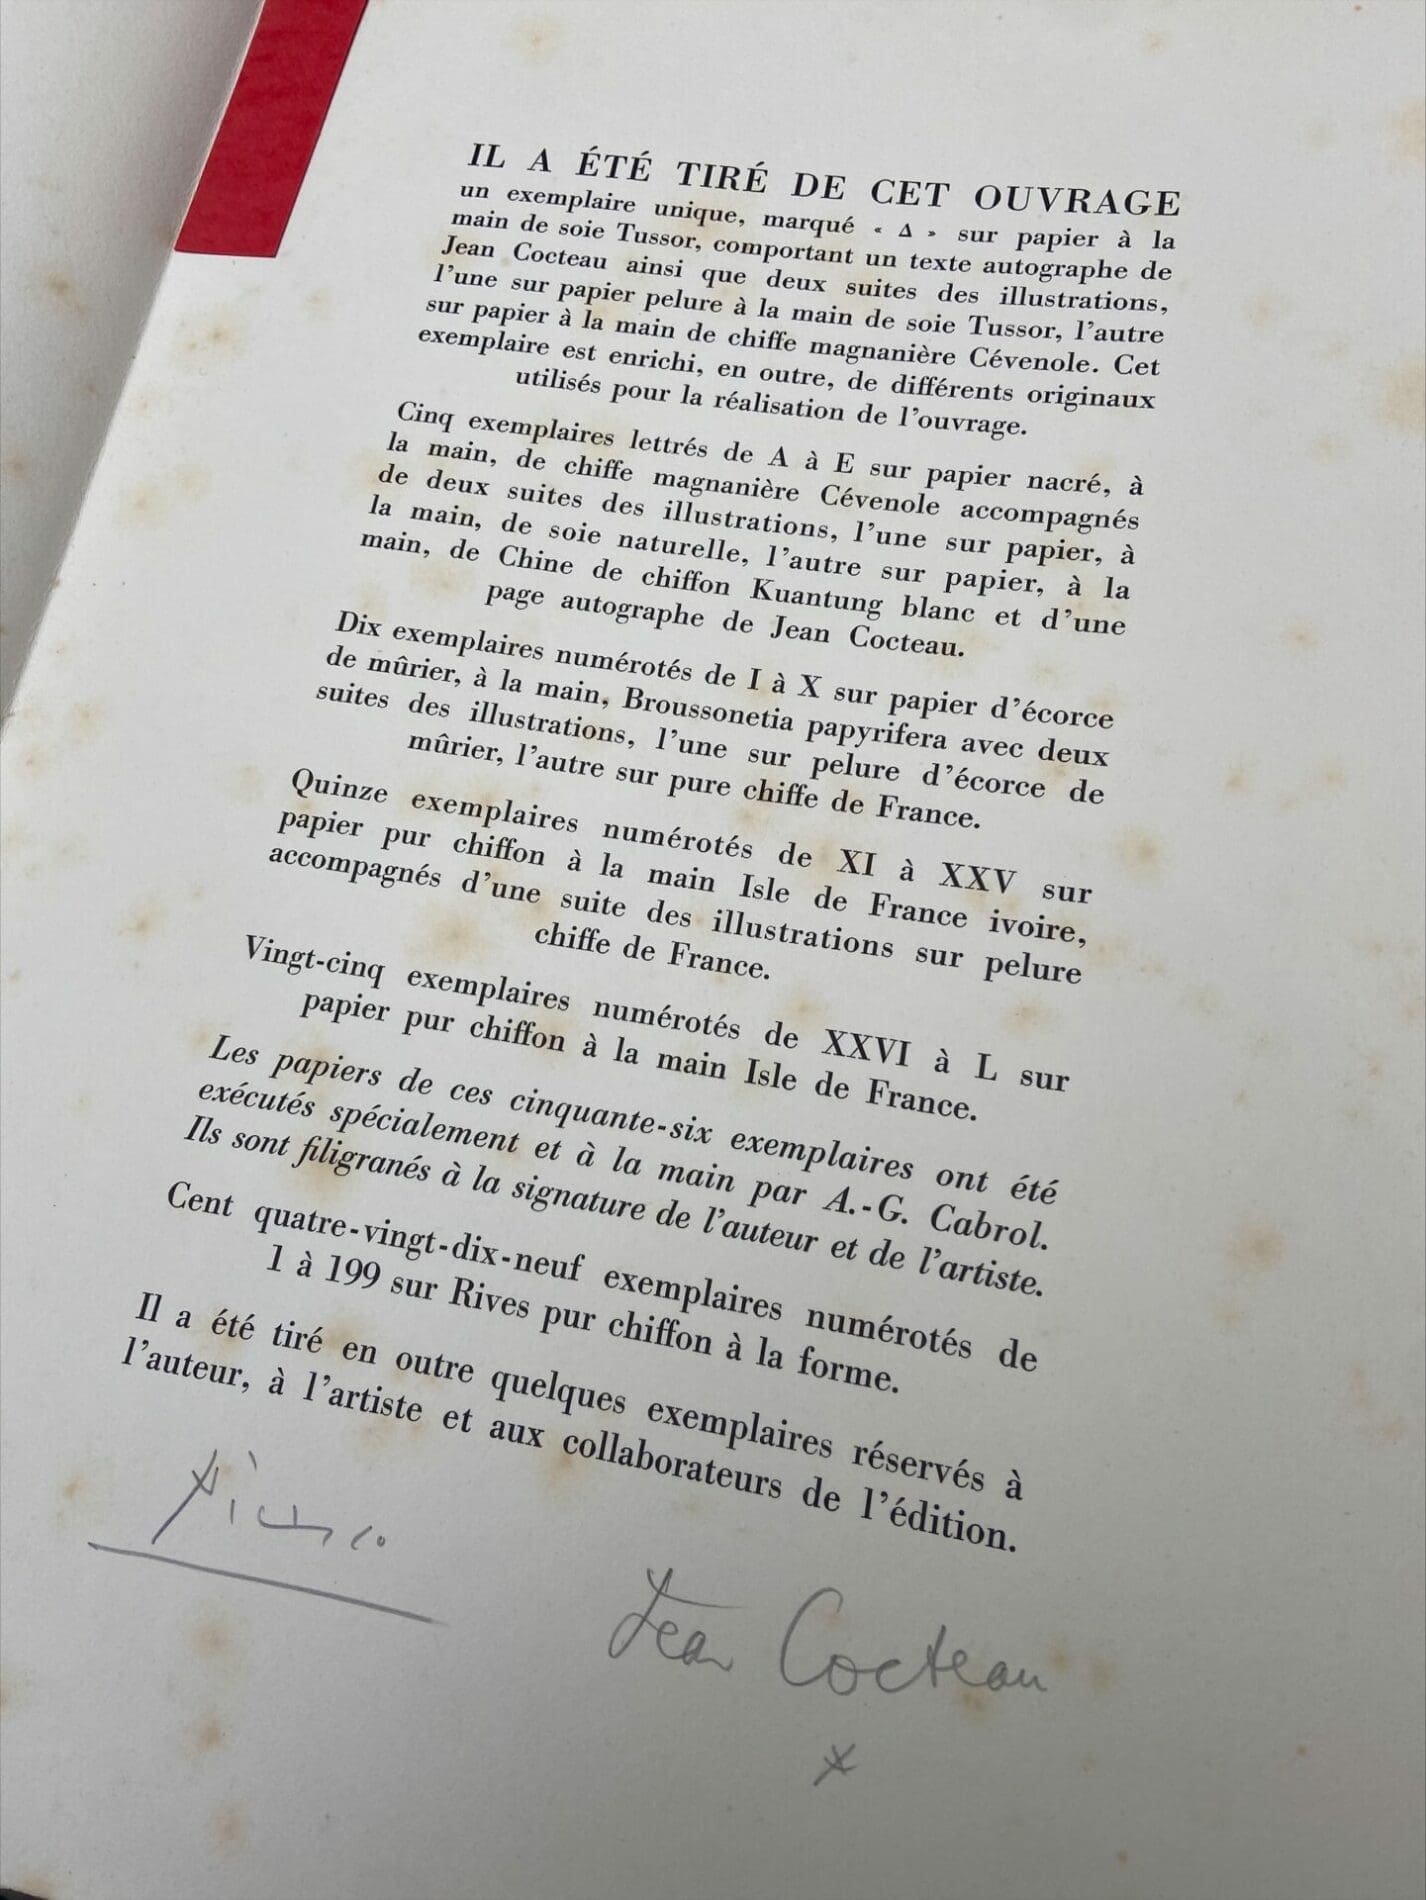 IL A ÉTÉ TIRÉ DE CET OUVRAGE
un exemplaire unique, marqué « Δ » sur papier à la
main de soie Tussor, comportant un texte autographe de
Jean Cocteau ainsi que deux suites des illustrations,
l'une sur papier pelure à la main de soie Tussor, l'autre
sur papier à la main de chiffe magnanière Cévenole. Cet
exemplaire est enrichi, en outre, de différents originaux
utilisés pour la réalisation de l'ouvrage.
Cinq exemplaires lettrés de A à E sur papier nacré, à
la main, de chiffe magnanière Cévenole accompagnés
de deux suites des illustrations, l'une sur papier, à
la main, de soie naturelle, l'autre sur papier, à la
main, de Chine de chiffon Kuantung blanc et d'une
page autographe de Jean Cocteau.
Dix exemplaires numérotés de I à X sur papier d'écorce
de mûrier, à la main, Broussonetia papyrifera avec deux
suites des illustrations, l'une sur pelure d'écorce de
mûrier, l'autre sur pure chiffe de France.
Quinze exemplaires numérotés de XI à XXV sur
papier pur chiffon à la main Isle de France ivoire,
accompagnés d'une suite des illustrations sur pelure
chiffe de France.
Vingt-cinq exemplaires numérotés de XXVI à L sur
papier pur chiffon à la main Isle de France.
Les papiers de ces cinquante-six exemplaires ont été
exécutés spécialement et à la main par A.-G. Cabrol.
Ils sont filigranés à la signature de l'auteur et de l'artiste.
Cent quatre-vingt-dix-neuf exemplaires numérotés de
1 à 199 sur Rives pur chiffon à la forme.
Il a été tiré en outre quelques exemplaires réservés à
l'auteur, à l'artiste et aux collaborateurs de l'édition.
Picasso
Jean Cocteau